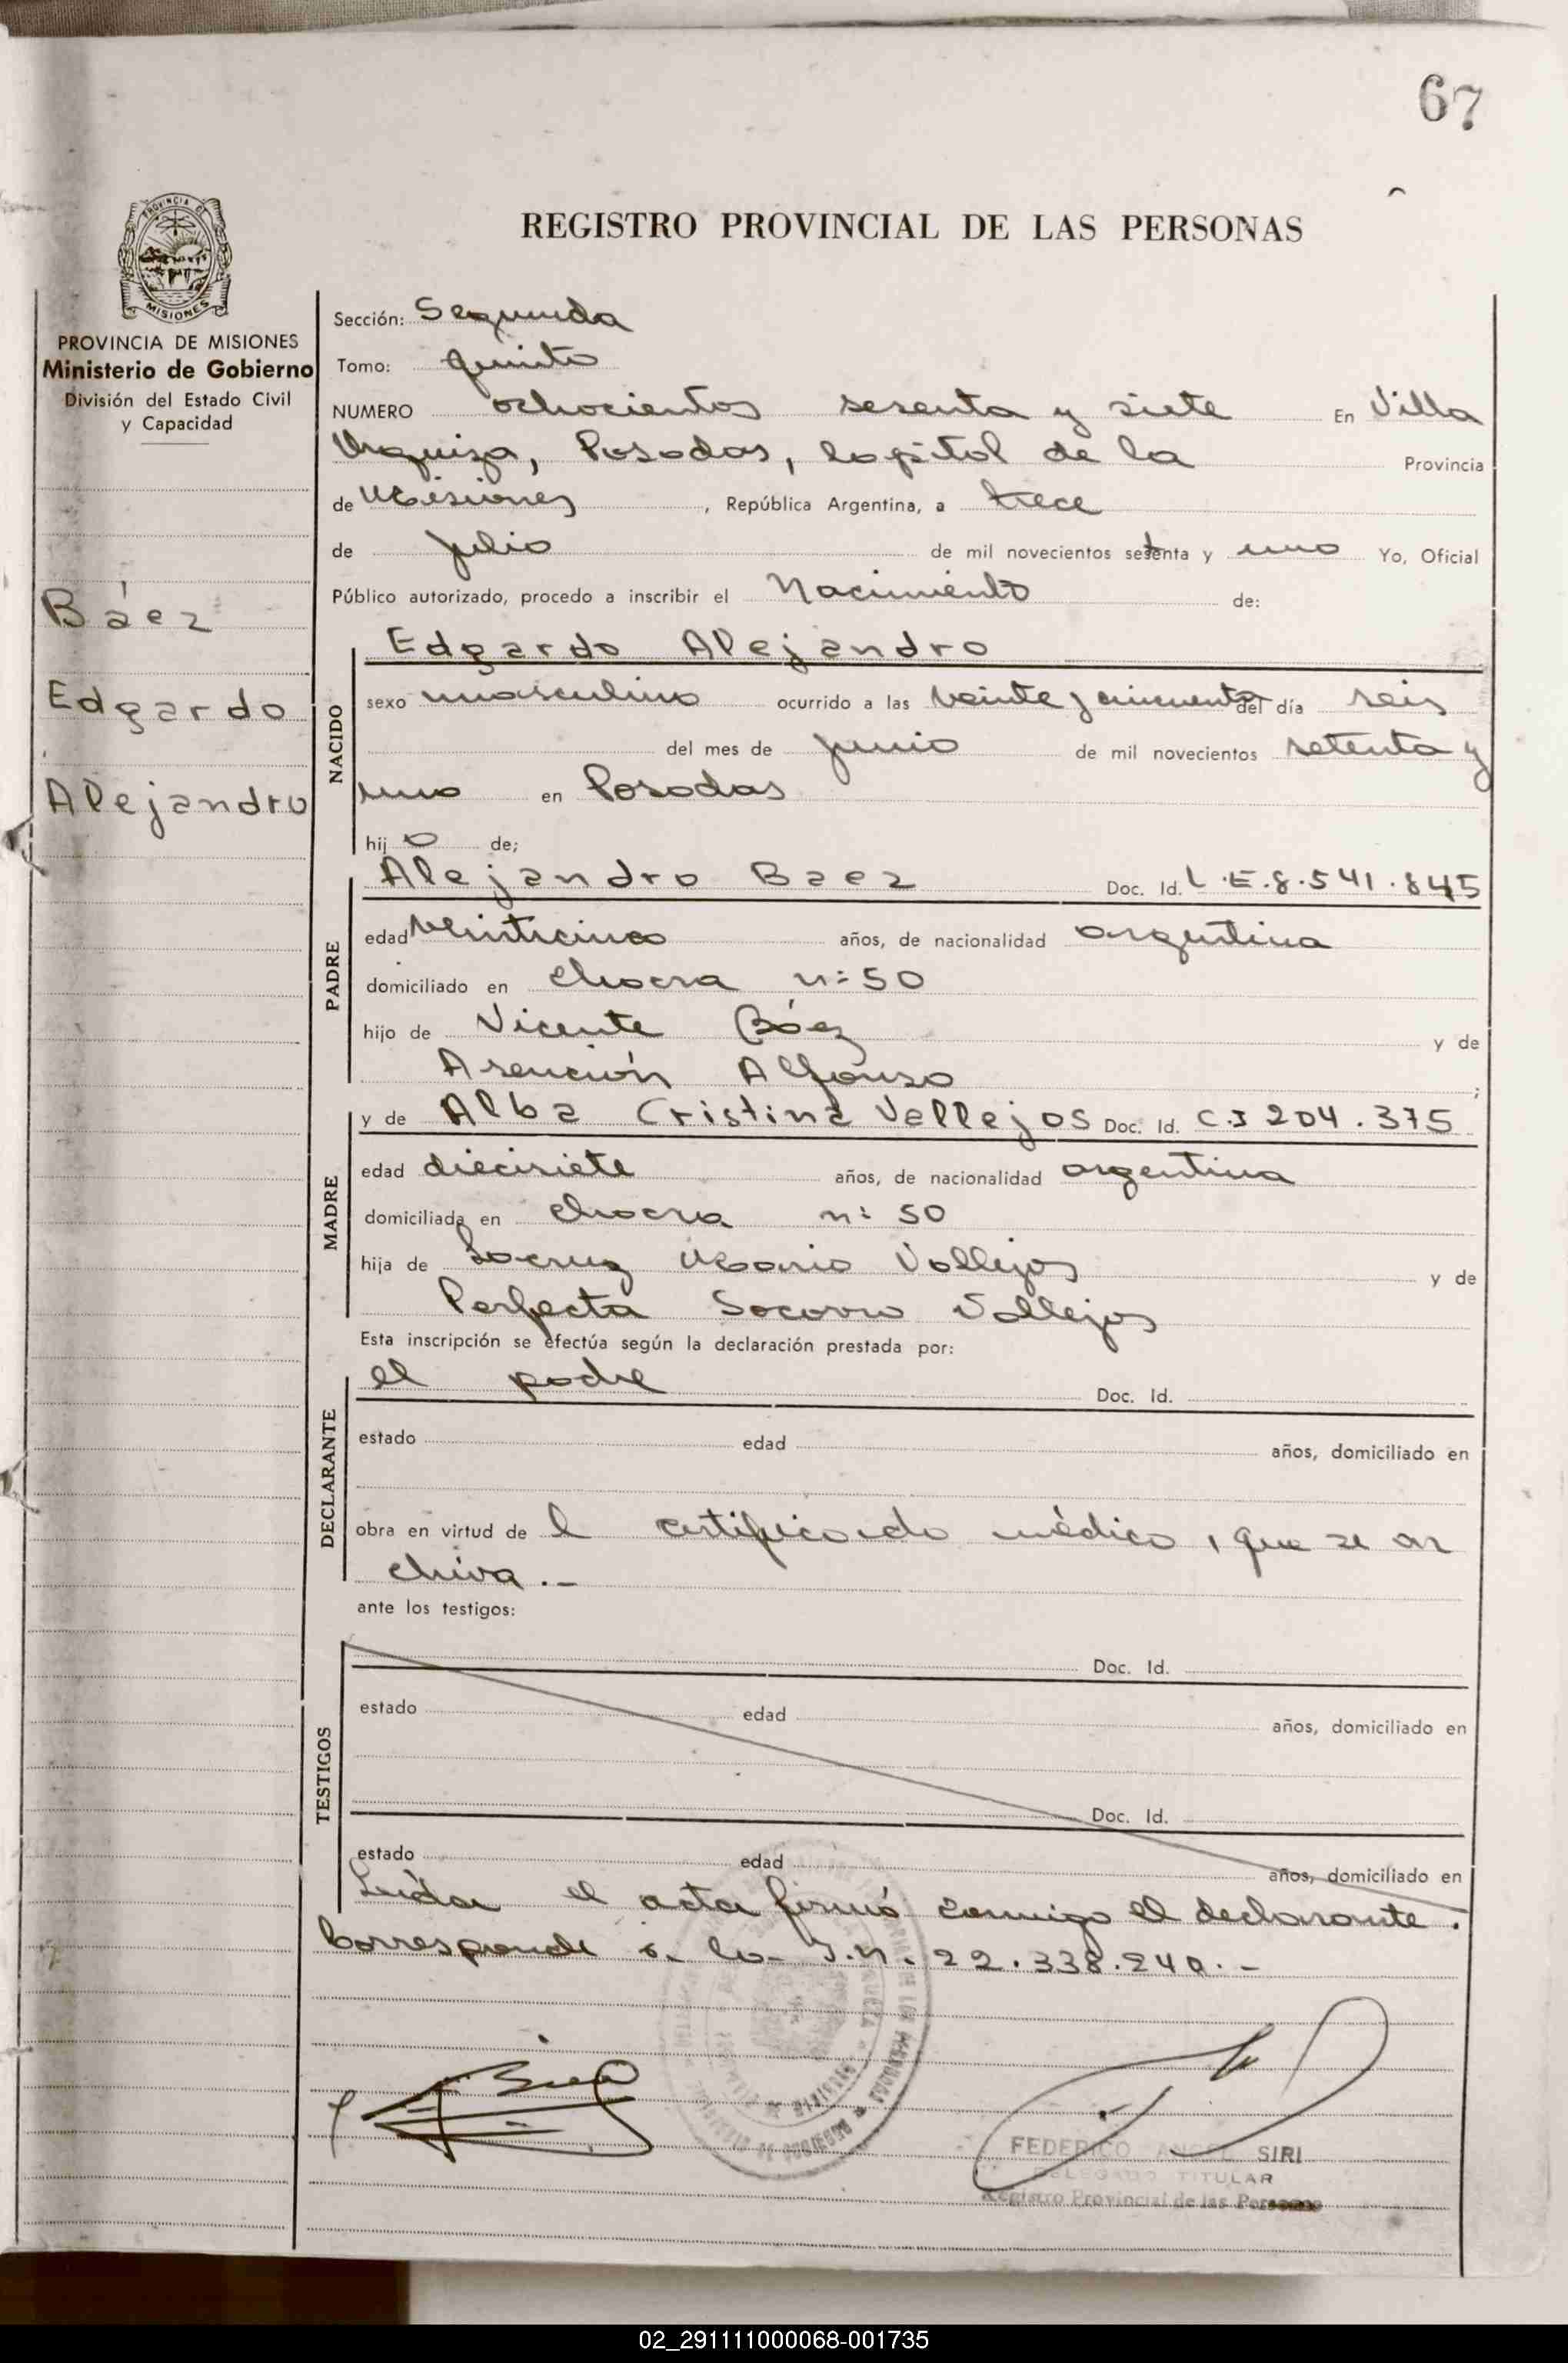 67
PROVINCIA DE
MISIONES
REGISTRO PROVINCIAL DE LAS PERSONAS
PROVINCIA DE MISIONES
Ministerio de Gobierno
División del Estado Civil
y Capacidad
Báez
Edgardo
Alejandro
Sección: Segunda
Tomo: quinto
NUMERO ochocientos sesenta y siete En Villa
Urquiza, Posadas, Capital de la Provincia
de Misiones, República Argentina, a trece
de julio de mil novecientos setenta y uno Yo, Oficial
Público autorizado, procedo a inscribir el Nacimiento de:
NACIDO
Edgardo Alejandro
sexo masculino ocurrido a las veinte y cincuenta del día seis
del mes de junio de mil novecientos setenta y
uno en Posadas
hijo de;
PADRE
Alejandro Baez Doc. Id. L.E.8.541.845
edad veinticinco años, de nacionalidad argentina
domiciliado en chacra n: 50
hijo de Vicente Báez y de
Asención Alfonso;
MADRE
y de Alba Cristina Vallejos Doc. Id. C.I 204.375
edad diecisiete años, de nacionalidad argentina
domiciliada en chacra n: 50
hija de Lacruz Mario Vallejos y de
Perfecta Socorro Vallejos
Esta inscripción se efectúa según la declaración prestada por:
DECLARANTE
el padre Doc. Id.
estado edad años, domiciliado en
obra en virtud del certificado médico, que se ar
chiva.-
ante los testigos:
TESTIGOS
Doc. Id.
estado edad años, domiciliado en
Doc. Id.
estado edad años, domiciliado en
Leída el acta firmó conmigo el declarante.
Corresponde a la I.n. 22.338.240.-
FEDERICO ANGEL SIRI
DELEGADO TITULAR
Registro Provincial de las Personas
02_291111000068-001735